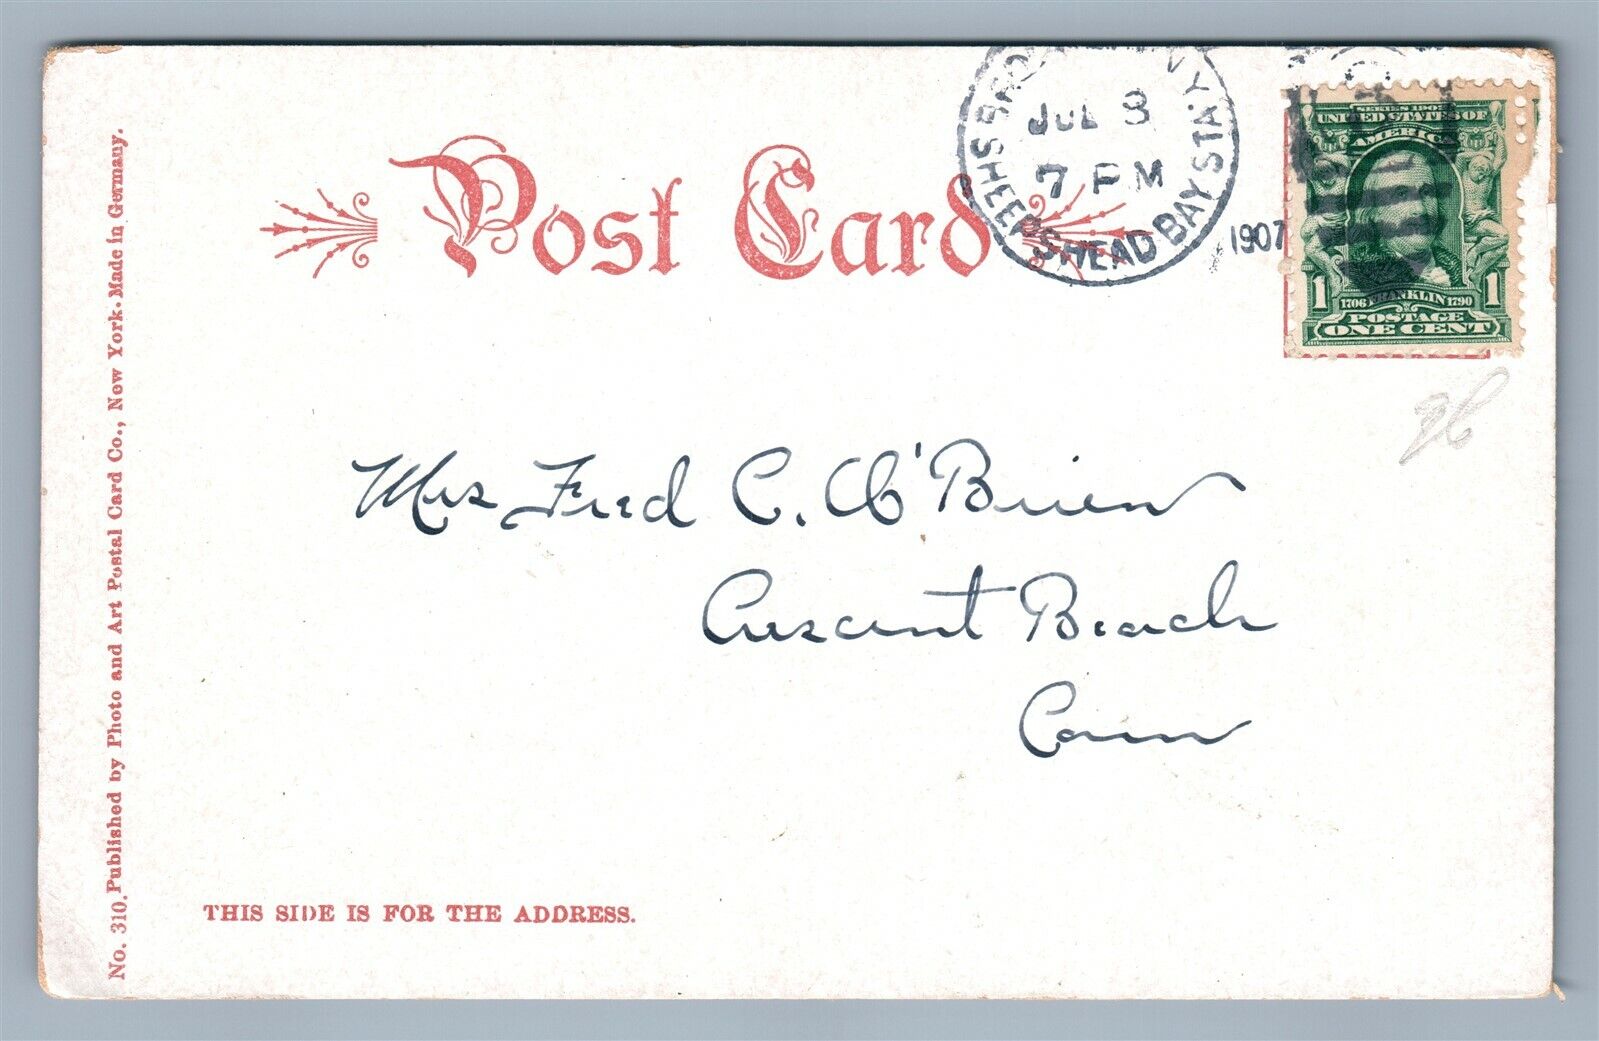 Post Card
JUL 3
7 PM
SHEEPSHEAD BAY STA.
N.Y.
1907
SERIES 1902
UNITED STATES OF
AMERICA
1 1706 FRANKLIN 1790 1
POSTAGE
ONE CENT
Mrs Fred C. O'Brien
Crescent Beach
Conn
THIS SIDE IS FOR THE ADDRESS.
No. 310. Published by Photo and Art Postal Card Co., New York. Made in Germany.